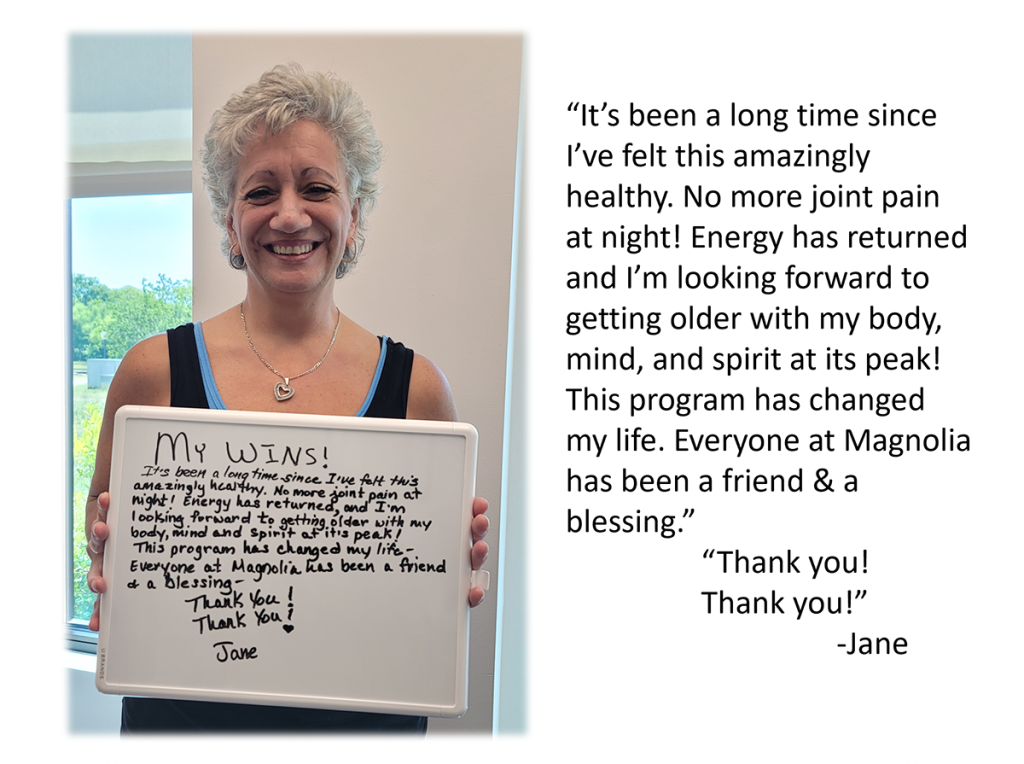 My WINS!
It's been a long time since I've felt this
amazingly healthy. No more joint pain at
night! Energy has returned, and I'm
looking forward to getting older with my
body, mind and spirit at it's peak!
This program has changed my life-
Everyone at Magnolia has been a friend
& a blessing-
Thank You!
Thank You!
Jane
U BRANDS
“It’s been a long time since
I’ve felt this amazingly
healthy. No more joint pain
at night! Energy has returned
and I’m looking forward to
getting older with my body,
mind, and spirit at its peak!
This program has changed
my life. Everyone at Magnolia
has been a friend & a
blessing.”
“Thank you!
Thank you!”
-Jane